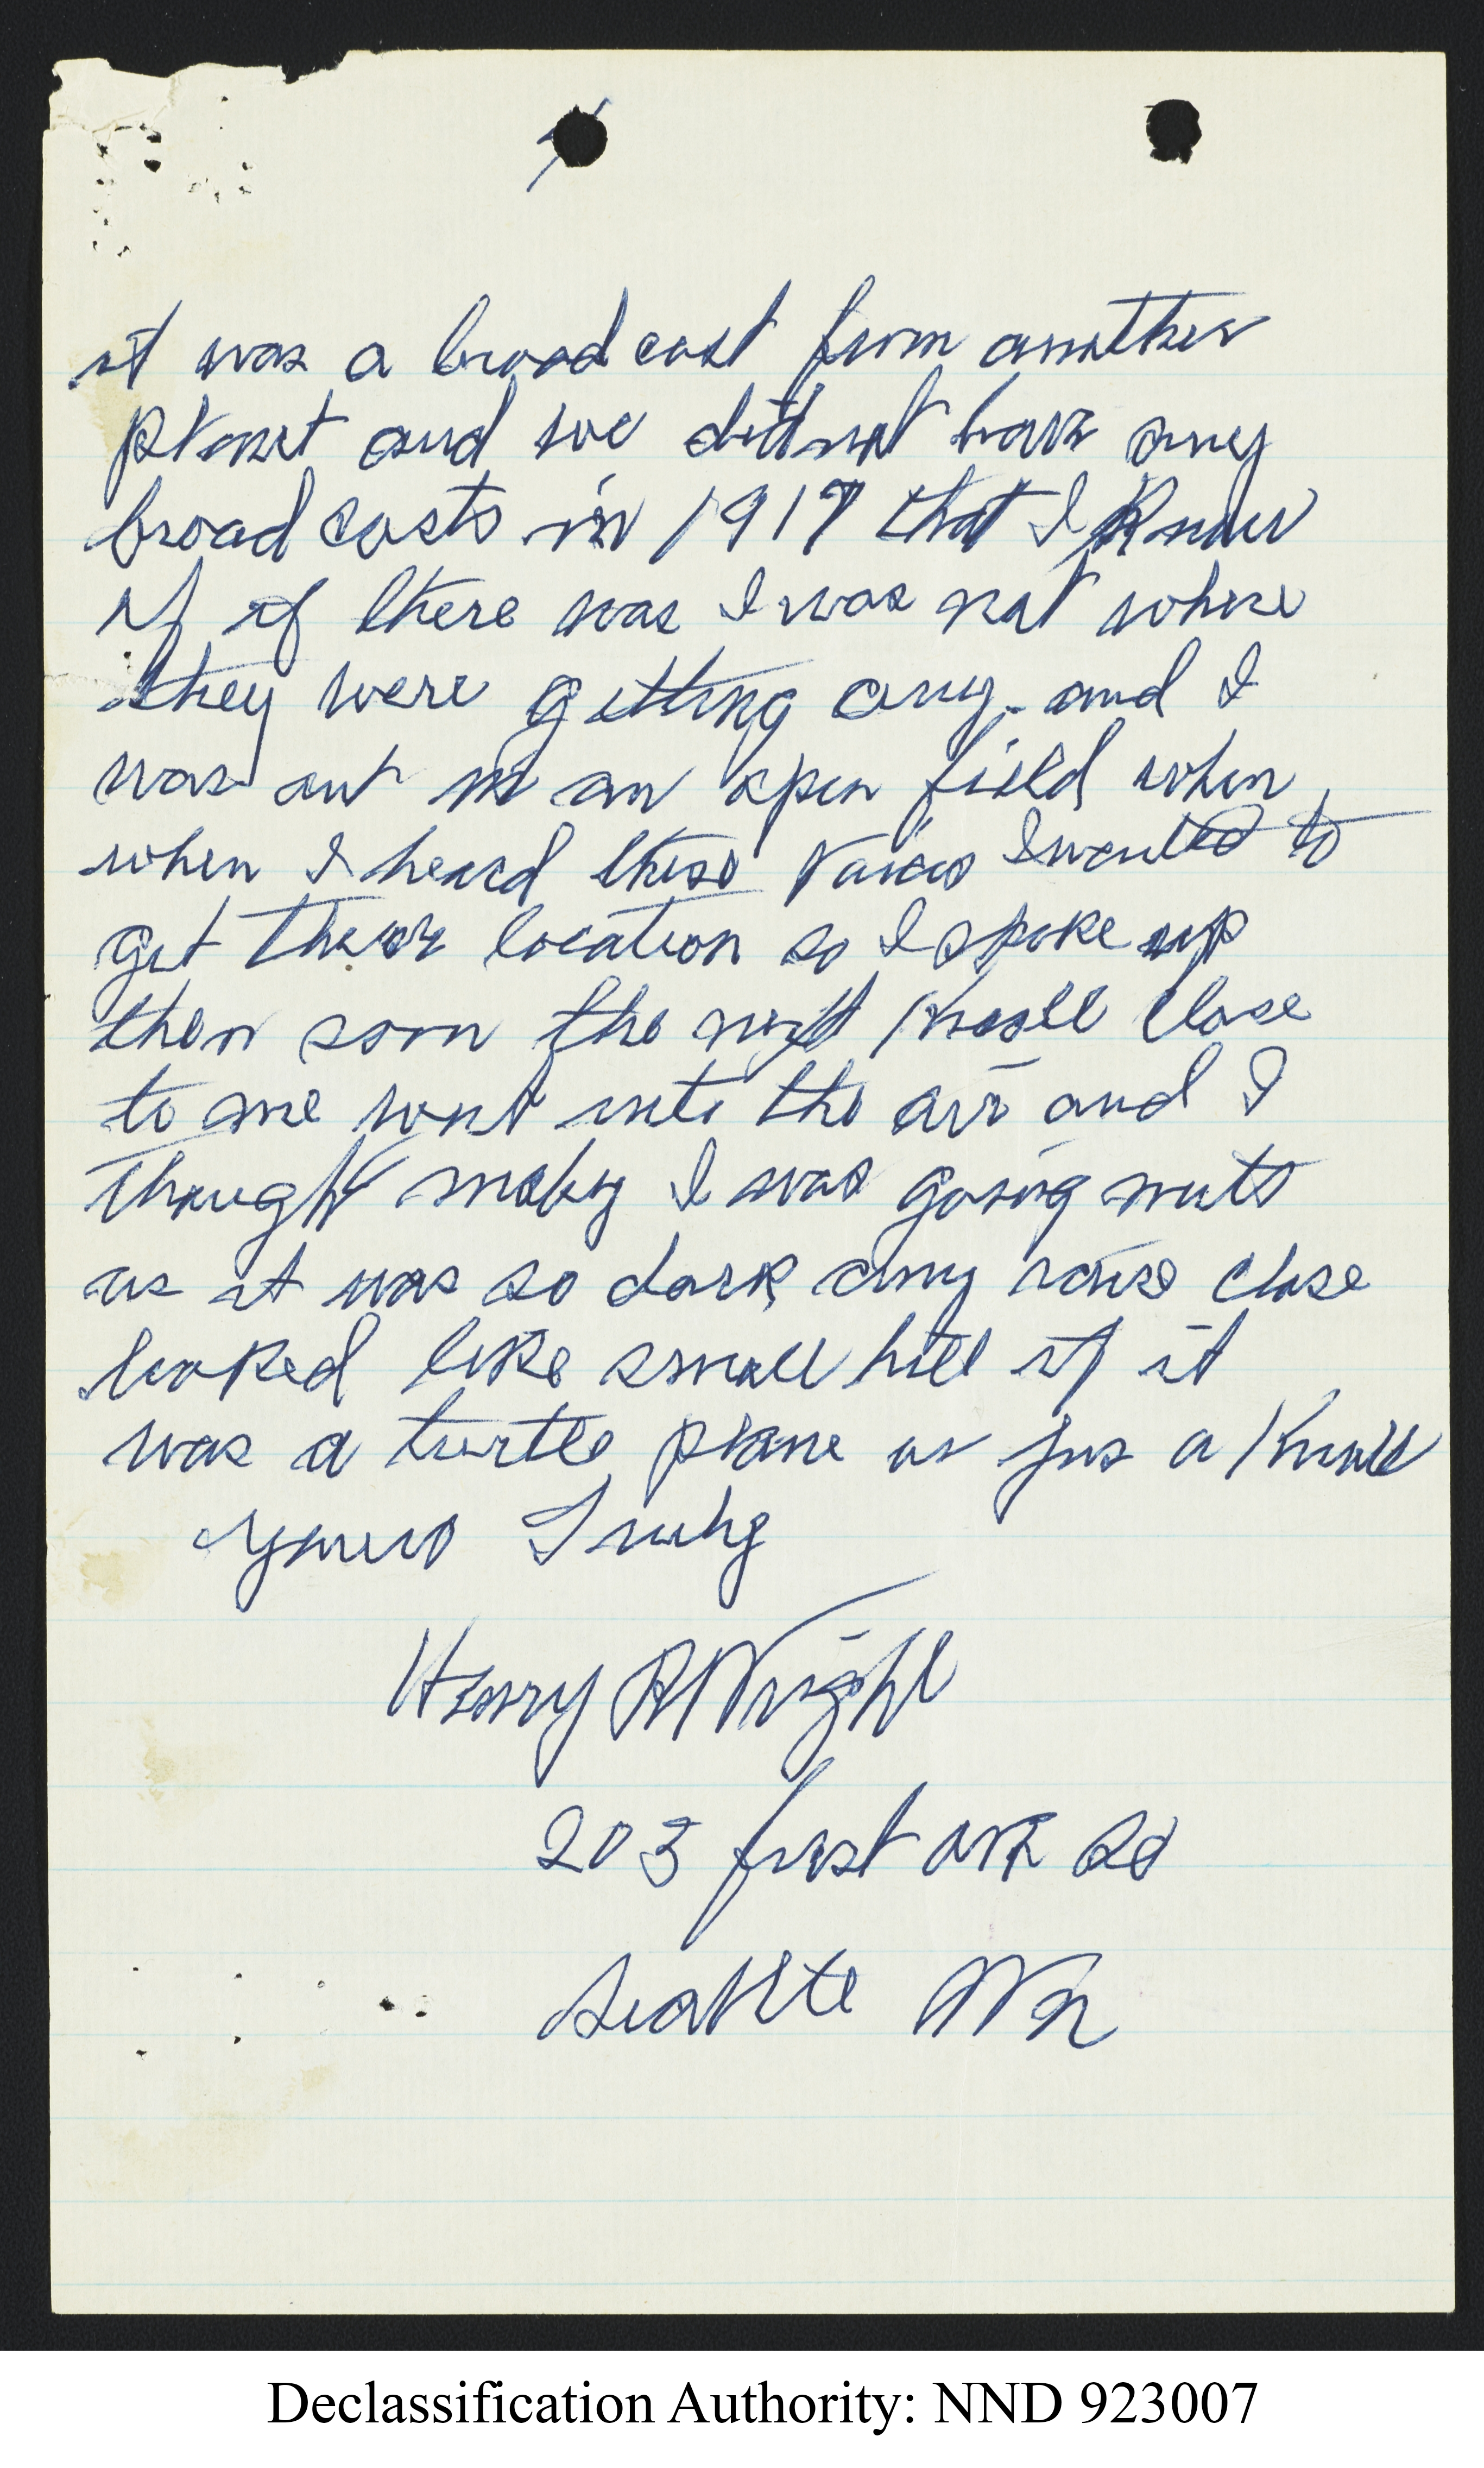 it was a broad cast from another
planet and we did not have any
broad casts in 1917 that I Know
of if there was I was not where
they were getting any. and I
was out in an open field when
when I heard these Voices I wanted to
get their location so I spoke up
then soon the next Knoll close
to me went into the air and I
thought maby I was going nuts
as it was so dark any close
looked like small hill if it
was a turtle plane or jus a Knoll
yours Truly
Henry R Wright
203 first ave So
Seattle Wn
Declassification Authority: NND 923007